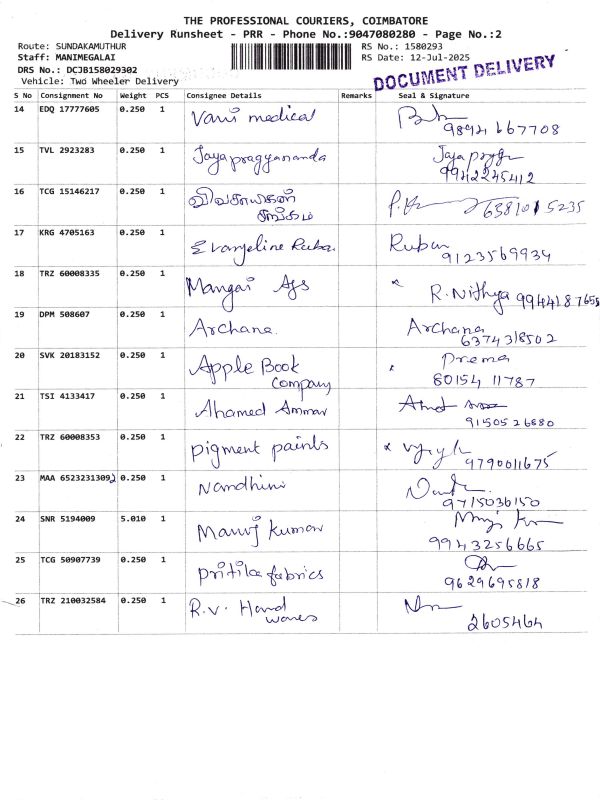 THE PROFESSIONAL COURIERS, COIMBATORE
Delivery Runsheet - PRR - Phone No.:9047080280 - Page No.:2
Route: SUNDAKAMUTHUR RS No.: 1580293
Staff: MANIMEGALAI RS Date: 12-Jul-2025
DRS No.: DCJB158029302
Vehicle: Two Wheeler Delivery
DOCUMENT DELIVERY
S No Consignment No Weight PCS Consignee Details Remarks Seal & Signature
14 EDQ 17777605 0.250 1 Vani medical
98941 667708
15 TVL 2923283 0.250 1 Jayapragyananda
9942245412
16 TCG 15146217 0.250 1 விவசாயிகள்
சங்கம்
17 KRG 4705163 0.250 1 Evanjeline Ruba. Ruban
9123569934
18 TRZ 60008335 0.250 1 Mangai Ajs R. Nithya 9944187655
19 DPM 508607 0.250 1 Archana. Archana
6374318502
20 SVK 20183152 0.250 1 Apple Book Prema
Company 80154 11787
21 TSI 4133417 0.250 1 Ahamed Ammar
9150526880
22 TRZ 60008353 0.250 1 pigment paints
9790011675
23 MAA 6523231309 0.250 1 Nandhini
9715036150
24 SNR 5194009 5.010 1 Manoj Kumar
9943256665
25 TCG 50907739 0.250 1 pritika fabrics
9629695818
26 TRZ 210032584 0.250 1 R.V. Hand
wares 2605464